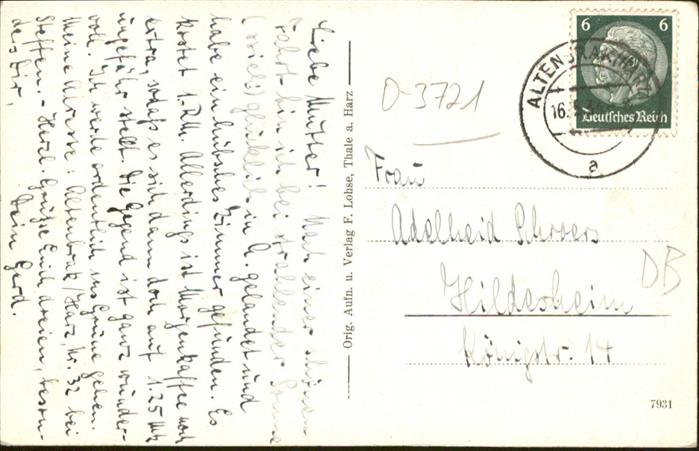 Liebe Mutter! Nach einer schönen
Fahrt bin ich bei strahlender Sonne
glücklich in A. gelandet und
habe ein hübsches Zimmer gefunden. Es
kostet 1.RM. Allerdings ist Morgenkaffee noch
extra, sodaß es sich dann doch auf 1.25 Mk
ungefähr stellt. Die Gegend ist ganz wunder-
voll. Ich werde ordentlich ins Grüne gehen.
Meine Adresse: Altenbrak/Harz Nr. 32 bei
Steffen. - Herzl. Grüße Euch dreien, beson-
ders Dir,
Dein Gerd.
Orig. Aufn. u. Verlag F. Lohse, Thale a. Harz
0-3721
6 6
Deutsches Reich
ALTENBRAK (HARZ)
16.
a
Frau
Adelheid Schroers
Hildesheim
Königstr. 14
DB
7931